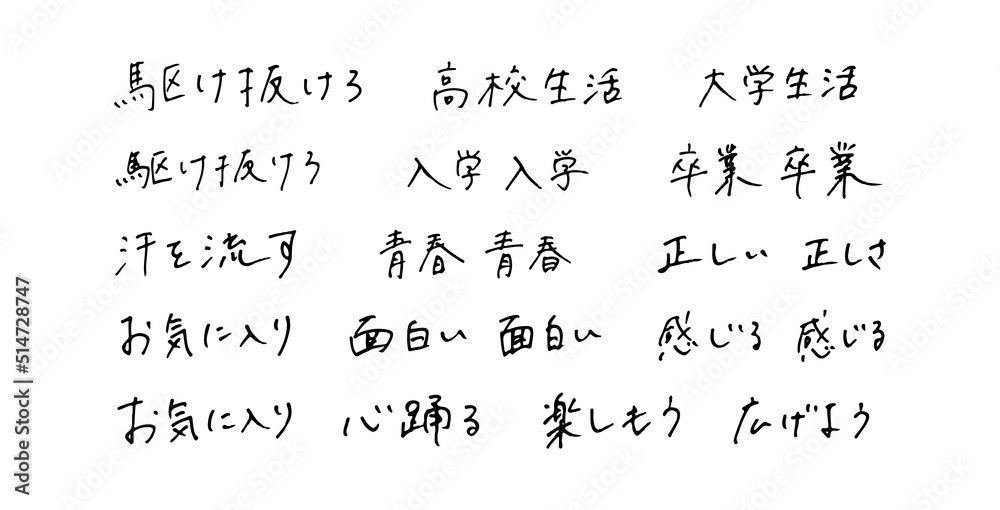 駆け抜けろ 高校生活 大学生活
駆け抜けろ 入学 入学 卒業 卒業
汗を流す 青春 青春 正しい 正しさ
お気に入り 面白い 面白い 感じる 感じる
お気に入り 心踊る 楽しもう 広げよう
Adobe Stock | #514728747